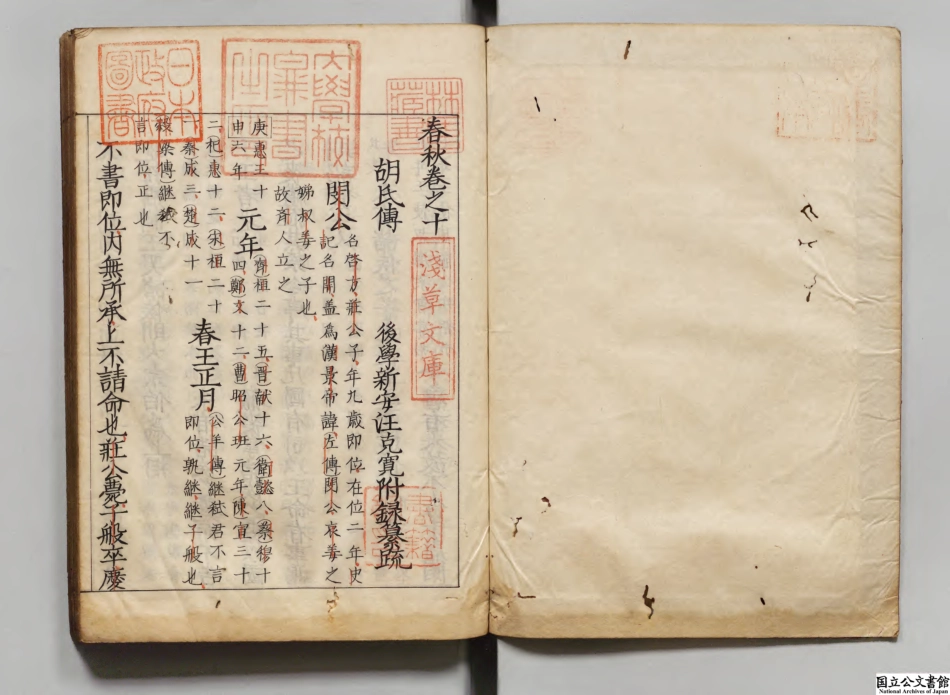 春秋卷之十
胡氏傳　後學新安汪克寬附錄纂疏
閔公 名啓方莊公子年九歲即位在位二年史
記名開盖爲漢景帝諱左傳閔公哀姜之
娣叔姜之子也
故齊人立之
庚申 惠王十六年 元年 齊桓二十五晉献十六衛懿八蔡穆十
四鄭文十二曹昭公班元年陳宣三十
二杞惠十二宋桓二十
一秦成三楚成十一
春王正月 公羊傳繼弑君不言
即位孰繼繼子般也
穀梁傳繼弑不
言即位正也
不書即位内無所承上不請命也莊公薨子般卒慶
日本政府圖書
淺草文庫
林氏藏書
書籍
国立公文書館
National Archives of Japan